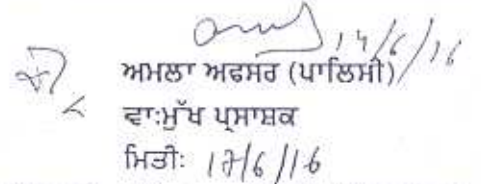 17/6/16
ਅਮਲਾ ਅਫਸਰ (ਪਾਲਿਸੀ)
ਵਾ:ਮੁੱਖ ਪ੍ਰਸਾਸ਼ਕ
ਮਿਤੀ: 17/6/16